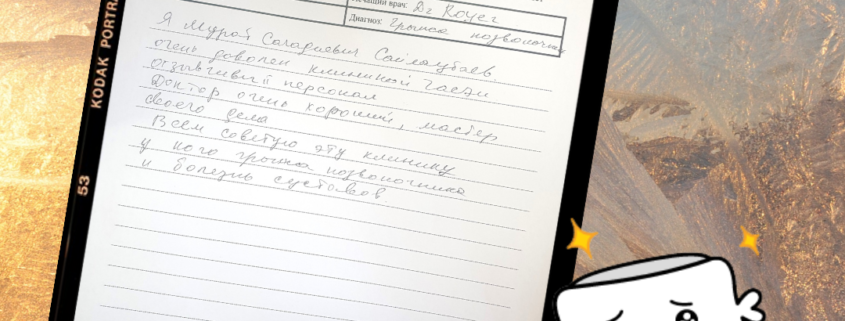 KODAK PORTRA
53
врач: Dr Royer
Диагноз: Грыжа позвоночника
Я Мурат Сагадиевич Сайлаубаев
очень доволен клиникой Гаези
отзывчивый персонал
Доктор очень хороший, мастер
своего дела
Всем советую эту клинику
у кого грыжа позвоночника
и болезнь суставов